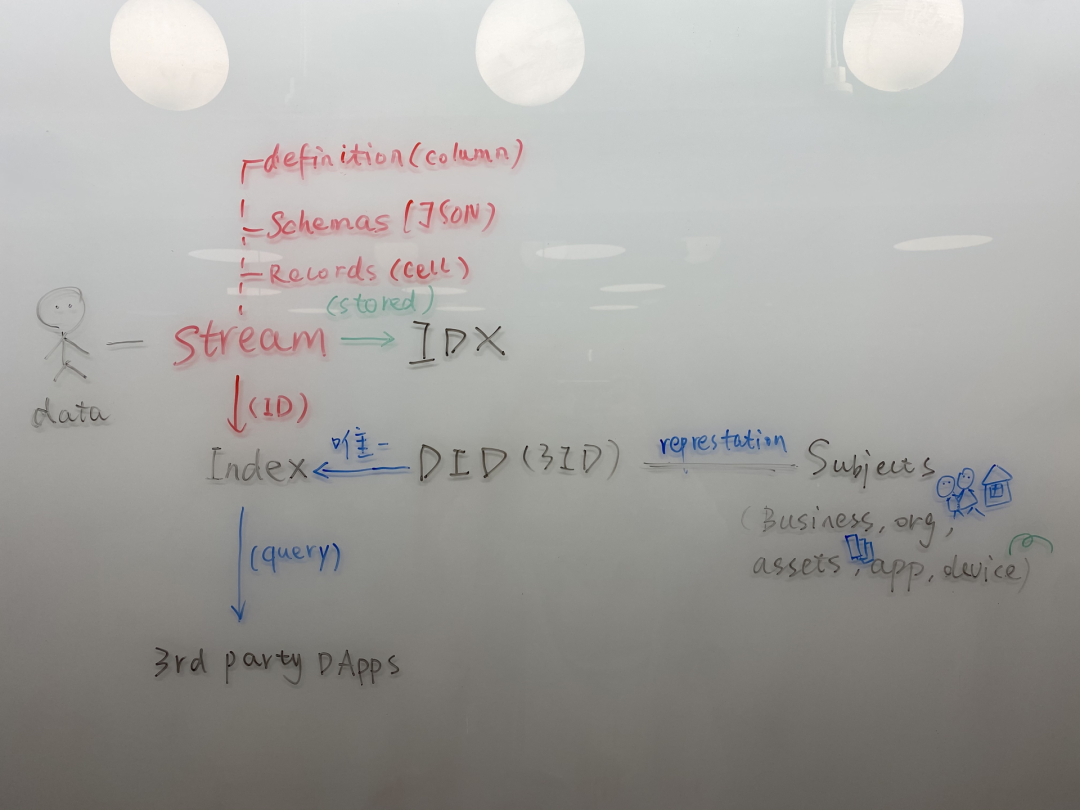 definition(column)
Schemas (JSON)
Records (cell)
(stored)
Stream
IDX
data
(ID)
Index
唯一
DID (3ID)
represtation
Subjects
(Business, org,
assets, app, device)
(query)
3rd party DApps